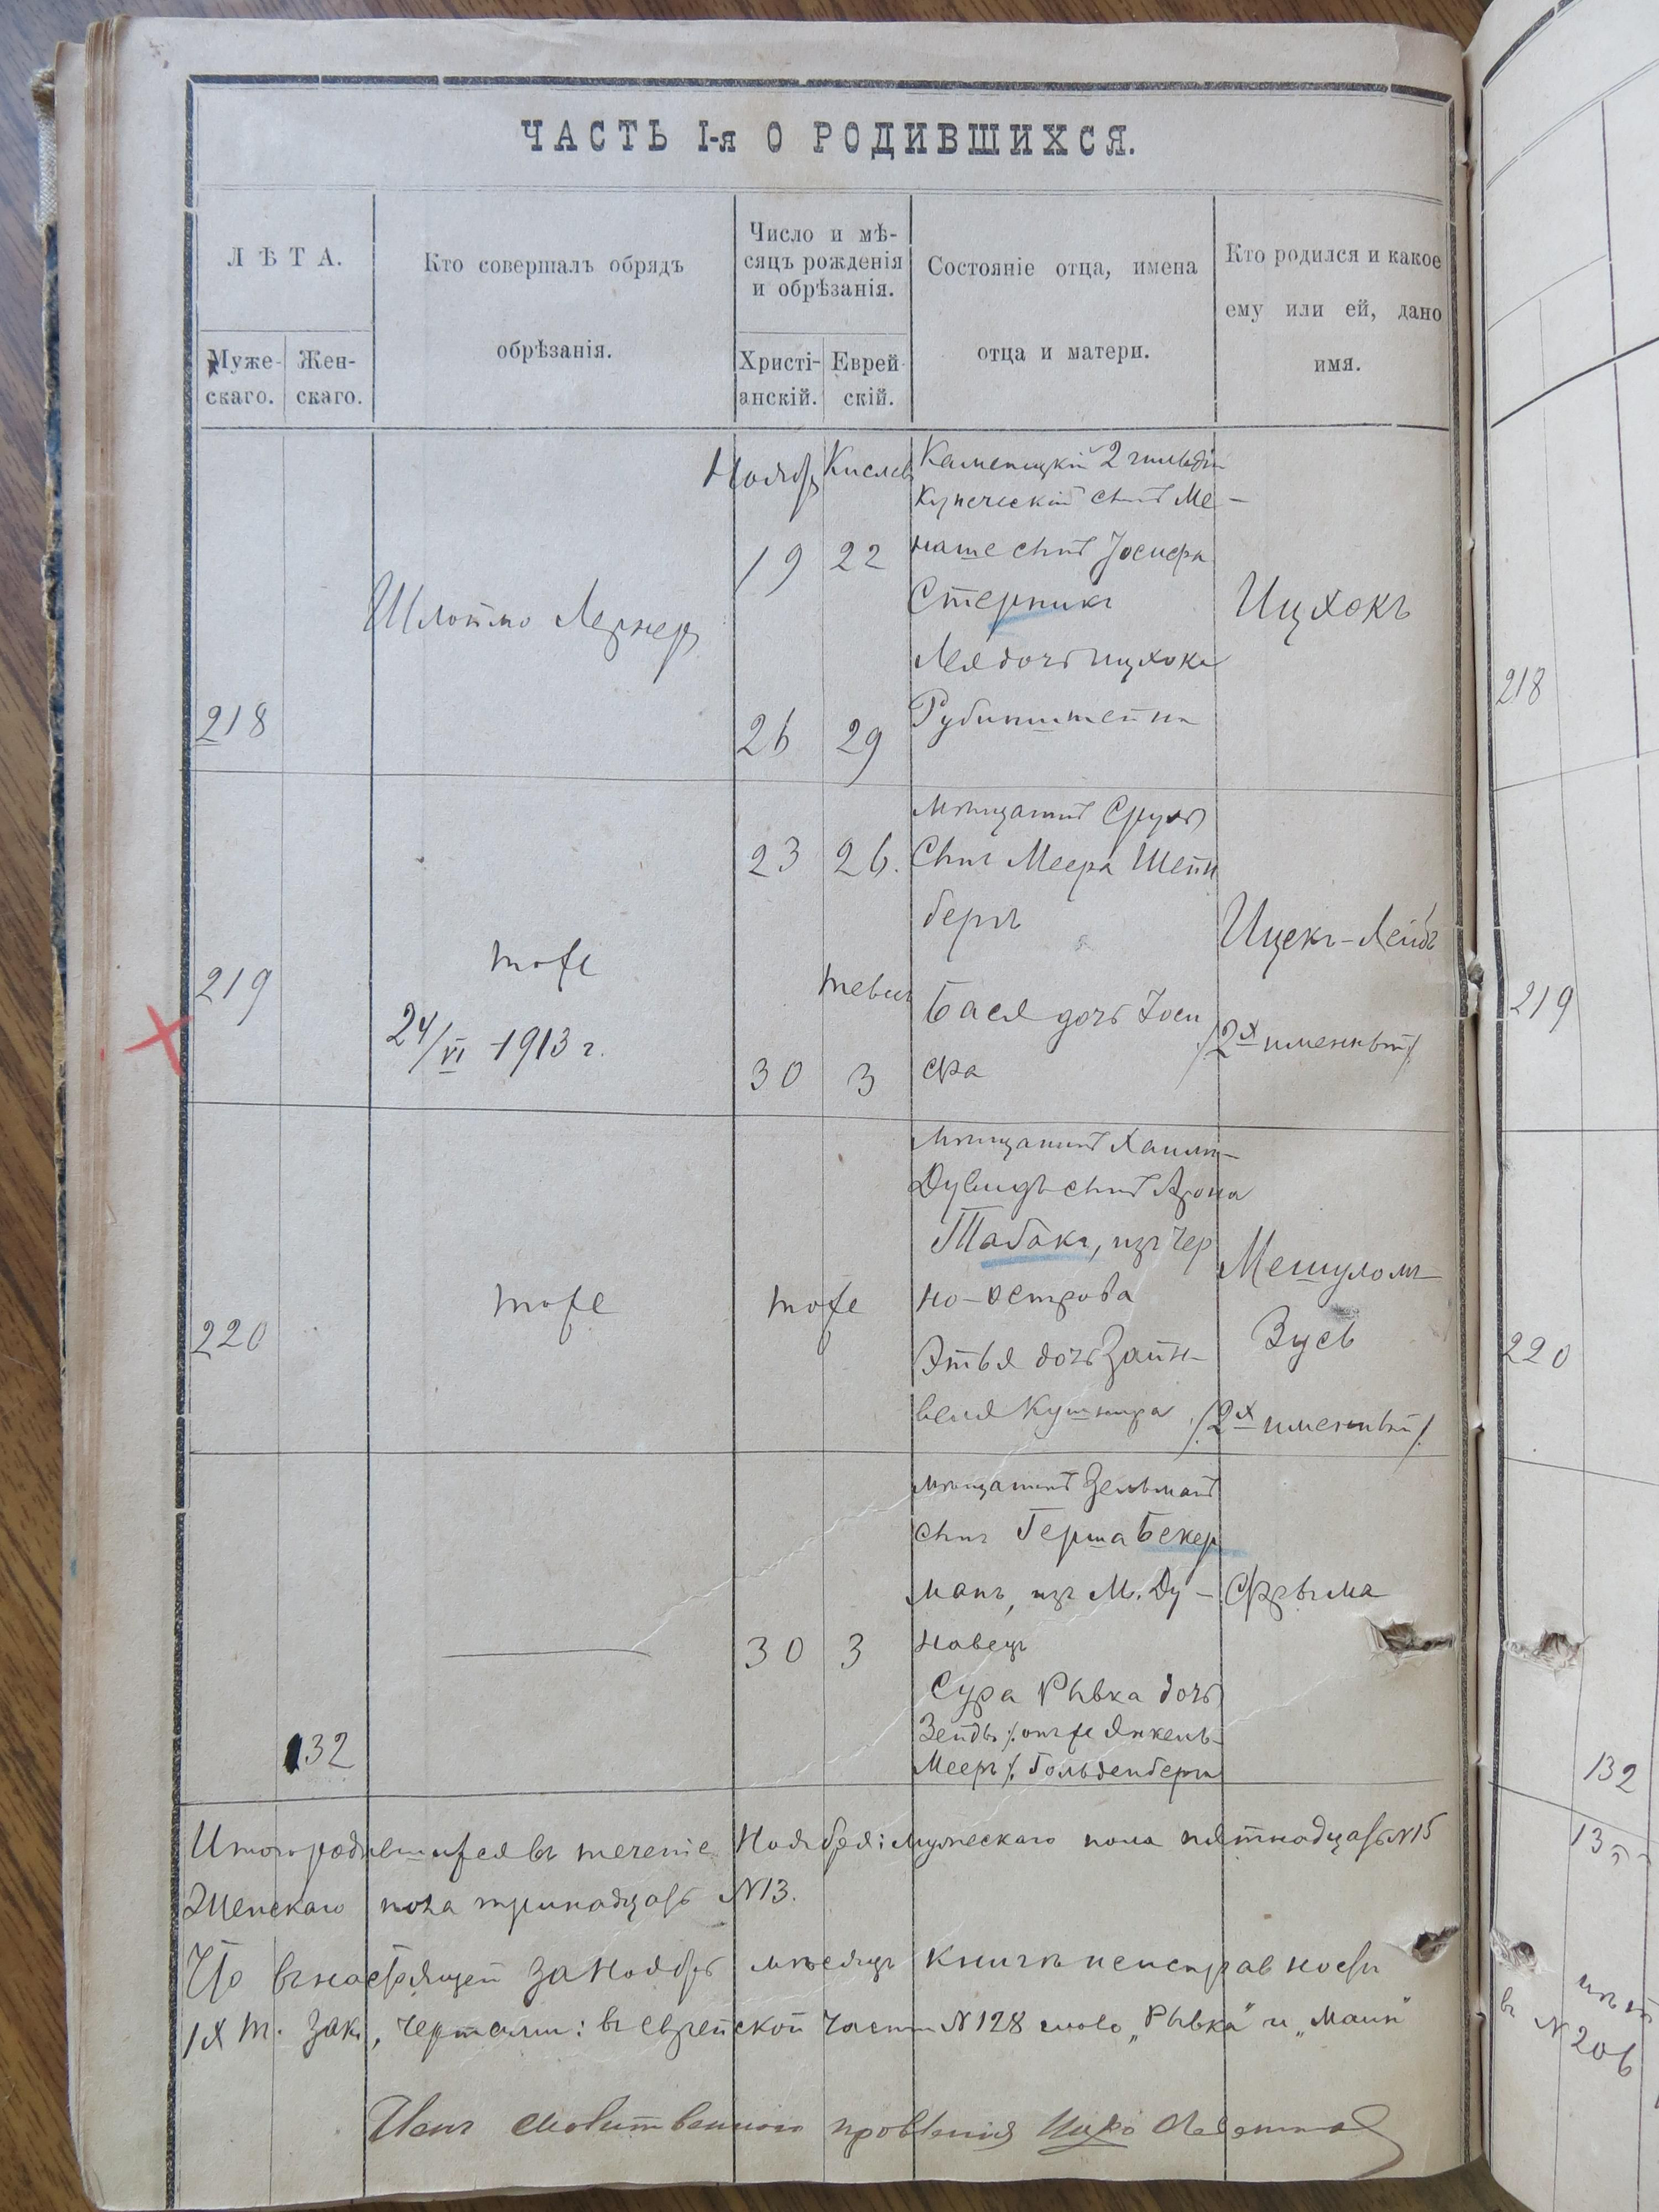 ЧАСТЬ I-я О РОДИВШИХСЯ.
ЛѢТА.
Муже-
скаго.
Жен-
скаго.
Кто совершалъ обрядъ
обрѣзанія.
Число и мѣ-
сяцъ рожденія
и обрѣзанія.
Христі-
анскій.
Еврей
скій.
Состояніе отца, имена
отца и матери.
Кто родился и какое
ему или ей, дано
имя.
218
Шлоймо Лернеръ
Ноябрь
Кислевъ
19
22
26
29
Каменецкій 2 гильдіи
Купеческій сынъ Ме-
наше сынъ Іосифа
Стерникъ
Лея дочь Ицхока
Рубинштейна
Ицхокъ
218
219
тоже
24/VI -1913 г.
23
26.
Тевет
30
3
мѣщанинъ Сруль
Сынъ Меера Шейн
бергъ
Бася дочь Іоси
фа
Ицекъ-Лейбъ
/2х именный/
219
220
тоже
тоже
мѣщанинъ Хаимъ-
Дувидъ сынъ Арона
Табакъ, изъ Чер
но-острова
Этья дочь Зайн-
веля Кушнира
Мешуломъ
Зусь
/2х именный/
220
132
30
3
мѣщанинъ Зельманъ
сынъ Герша Бекер
манъ, изъ М. Ду-
навецъ
Сура Рывка дочь
Зейды /: онъ же Янкель-
Мееръ /: Гольденберга
Фрыма
132
Итого родившихся въ теченіе Ноября: мужескаго пола пятнадцать №15
Женскаго пола тринадцать №13.
Что въ настоящей за Ноябрь мѣсяцъ книгѣ неисправности
IX т. зак., чертами: въ еврейской части №128 слово „Рывка" и „Маіи"
Членъ молитвеннаго правленія
13
въ №206